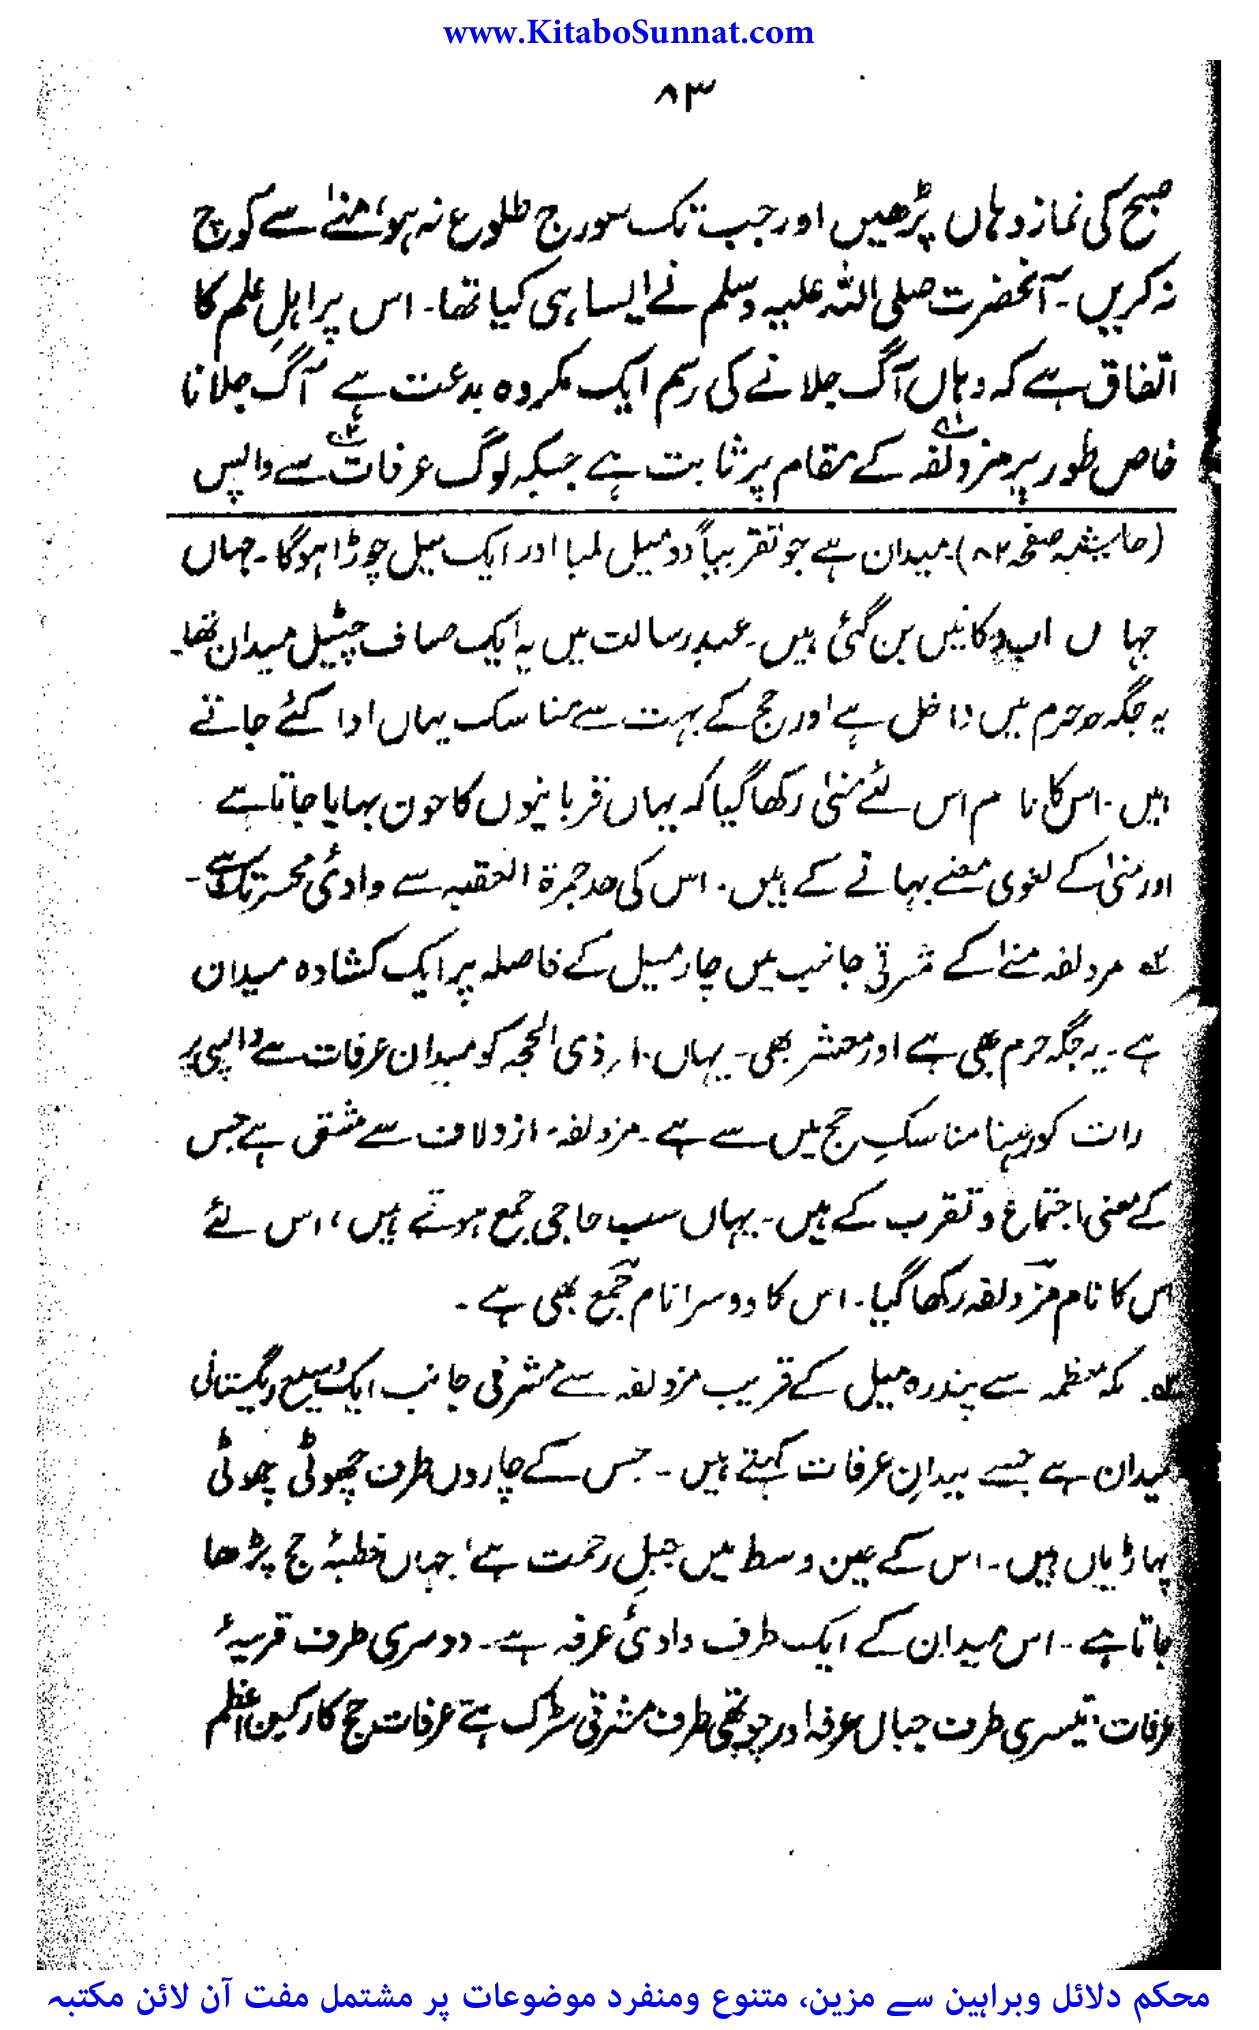 www.KitaboSunnat.com
۸۳
صبح کی نماز وہاں پڑھیں اور جب تک سورج طلوع نہ ہو، منےٰ سے کوچ
نہ کریں۔ آنحضرت صلی اللہ علیہ وسلم نے ایسا ہی کیا تھا۔ اس پر اہلِ علم کا
اتفاق ہے کہ وہاں آگ جلانے کی رسم ایک مکروہ بدعت ہے آگ جلانا
خاص طور پر مزدلفہ۱ کے مقام پر ثابت ہے جبکہ لوگ عرفات۲ سے واپس
(حاشیہ صفحہ ۸۲)۔ میدان ہے جو تقریباً دو میل لمبا اور ایک میل چوڑا ہوگا۔ جہاں
جہا ں اب دکانیں بن گئی ہیں۔ عہدِ رسالت میں یہ ایک صاف چٹیل میدان تھا۔
یہ جگہ حدِ حرم میں داخل ہے اور حج کے بہت سے مناسک یہاں ادا کئے جاتے
ہیں۔ اس کا نا م اس لئے منیٰ رکھا گیا کہ یہاں قربانیوں کا خون بہایا جاتا ہے
اور منیٰ کے لغوی معنے بہانے کے ہیں۔ اس کی حد جمرۃ العقبہ سے وادیٔ محسر تک ہے۔
۱ه مزدلفہ منےٰ کے شرقی جانب میں چار میل کے فاصلہ پر ایک کشادہ میدان
ہے۔ یہ جگہ حرم بھی ہے اور معشر بھی۔ یہاں ۱۰؍ ذی الحجہ کو میدان عرفات سے واپسی پر
رات کو رہنا مناسکِ حج میں سے ہے۔ مزدلفہ، ازدلاف سے مشتق ہے جس
کے معنی اجتماع و تقرب کے ہیں۔ یہاں سب حاجی جمع ہوتے ہیں، اس لئے
اس کا نام مزدلفہ رکھا گیا۔ اس کا دوسرا نام جمع بھی ہے۔
۲ه۔ مکہ معظمہ سے پندرہ میل کے قریب مزدلفہ سے مشرقی جانب ایک وسیع ریگستانی
میدان ہے جسے میدانِ عرفات کہتے ہیں۔ جس کے چاروں طرف چھوٹی چھوٹی
پہاڑیاں ہیں۔ اس کے عین وسط میں جبلِ رحمت ہے، جہاں خطبۂ حج پڑھا
جاتا ہے۔ اس میدان کے ایک طرف وادیٔ عرفہ ہے۔ دوسری طرف قریۂ
عرفات، تیسری طرف جبال عرفہ اور چوتھی طرف مشرقی سڑک ہے عرفات حج کا رکنِ اعظم
محکم دلائل وبراہین سے مزین، متنوع ومنفرد موضوعات پر مشتمل مفت آن لائن مکتبہ